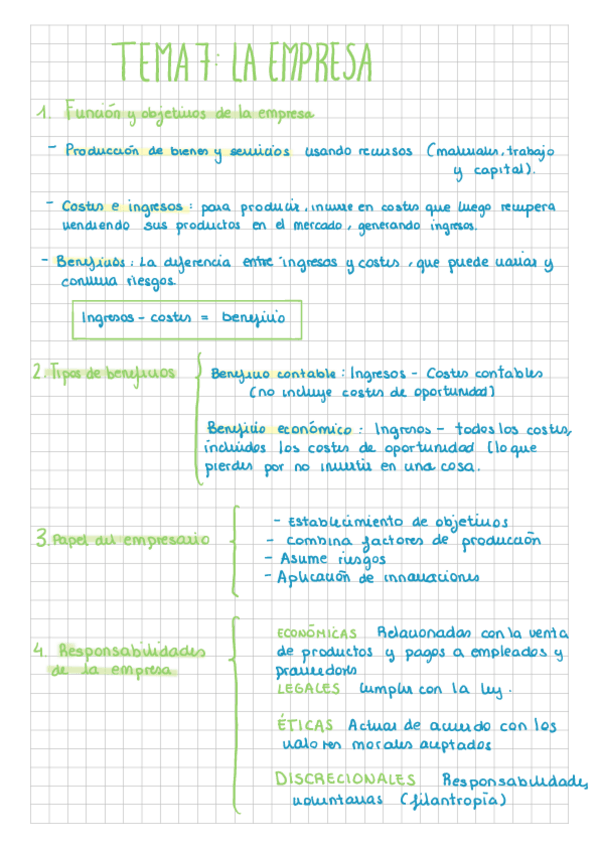 TEMA 7: LA EMPRESA
1. Función y objetivos de la empresa
- Producción de bienes y servicios usando recursos (materiales, trabajo
y capital).
- Costes e ingresos: para producir, invierte en costes que luego recupera
vendiendo sus productos en el mercado, generando ingresos.
- Beneficios: La diferencia entre ingresos y costes, que puede variar y
conlleva riesgos.
Ingresos - costes = beneficio
2. Tipos de beneficios
Beneficio contable: Ingresos - Costes contables
(no incluye costes de oportunidad)
Beneficio económico: Ingresos - todos los costes,
incluidos los costes de oportunidad (lo que
pierdes por no invertir en una cosa.
3. Papel del empresario
- Establecimiento de objetivos
- Combina factores de producción
- Asume riesgos
- Aplicación de innovaciones
4. Responsabilidades
de la empresa
ECONÓMICAS Relacionadas con la venta
de productos y pagos a empleados y
proveedores
LEGALES Cumplir con la ley.
ÉTICAS Actuar de acuerdo con los
valores morales aceptados
DISCRECIONALES Responsabilidades
voluntarias (filantropía)